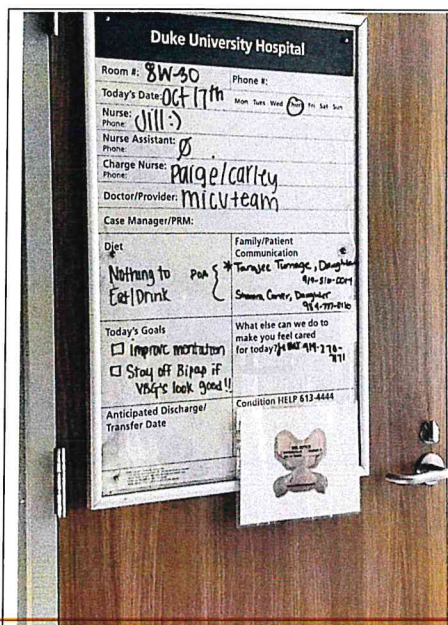 Duke University Hospital
Room #: 8W-30 Phone #:
Today's Date: Oct 17th Mon Tues Wed Thurs Fri Sat Sun
Nurse: Jill :)
Phone:
Nurse Assistant: Ø
Phone:
Charge Nurse: Paige/carley
Phone:
Doctor/Provider: micu team
Case Manager/PRM:
Diet
Nothing to
Eat/Drink
POA {
Family/Patient
Communication
* Turnage, Daughter
Daughter
Today's Goals
□ Improve mentation
□ Stay off Bipap if
VBG's look good!!
What else can we do to
make you feel cared
for today?
Anticipated Discharge/
Transfer Date
Condition HELP 613-4444